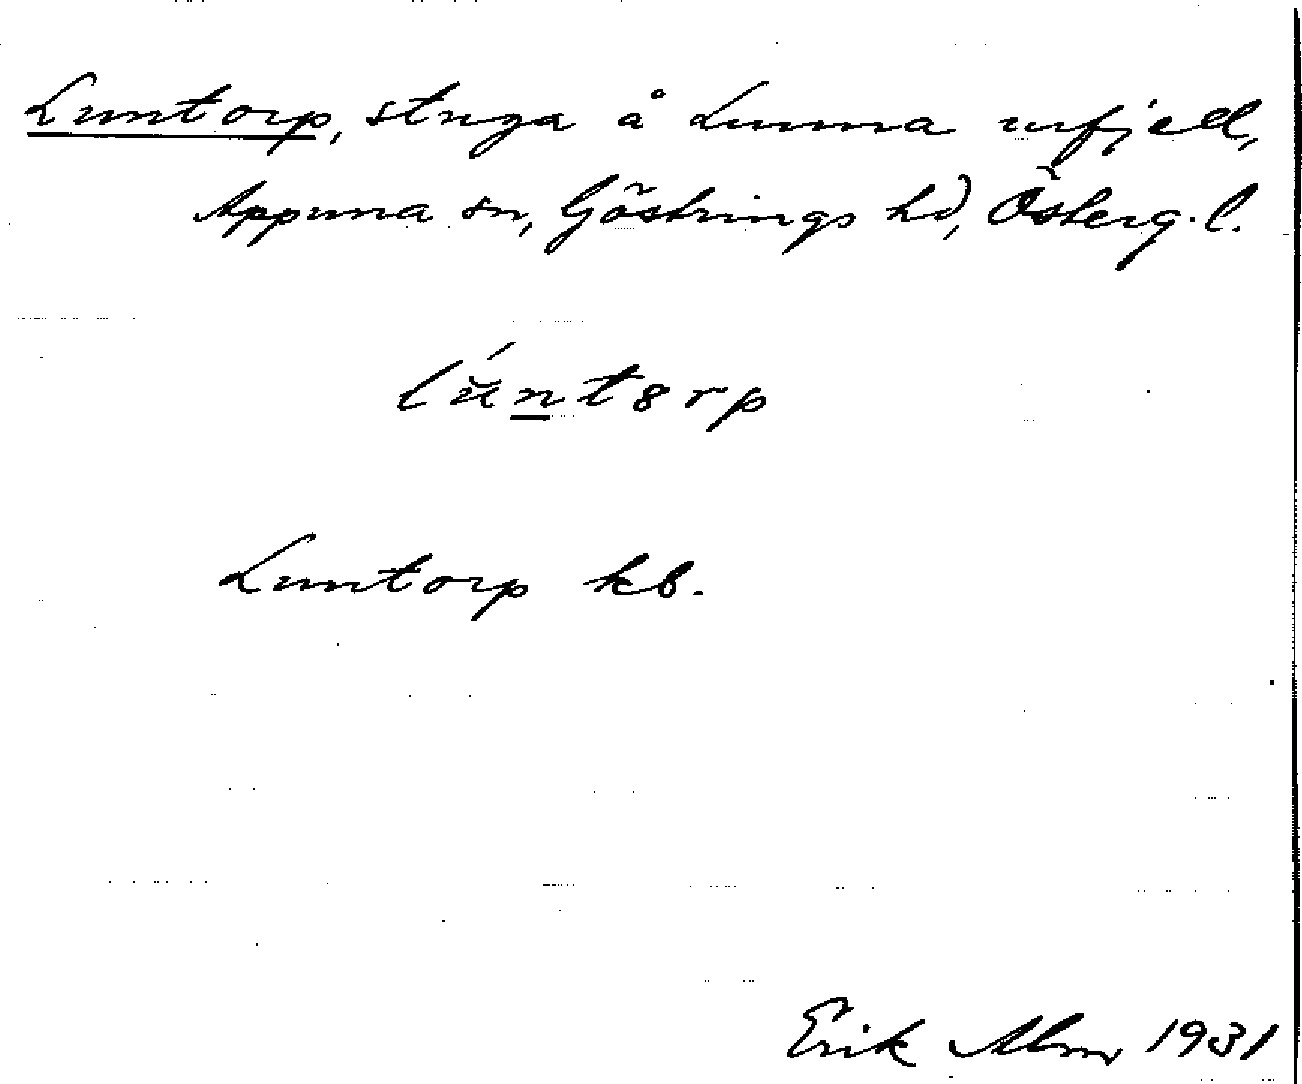 Luntorp, stuga å Lunna utfjell,
Appuna sn, Göstrings hd, Österg. l.
lŭ́ntȣrp
Luntorp kb.
Erik Alm 1931